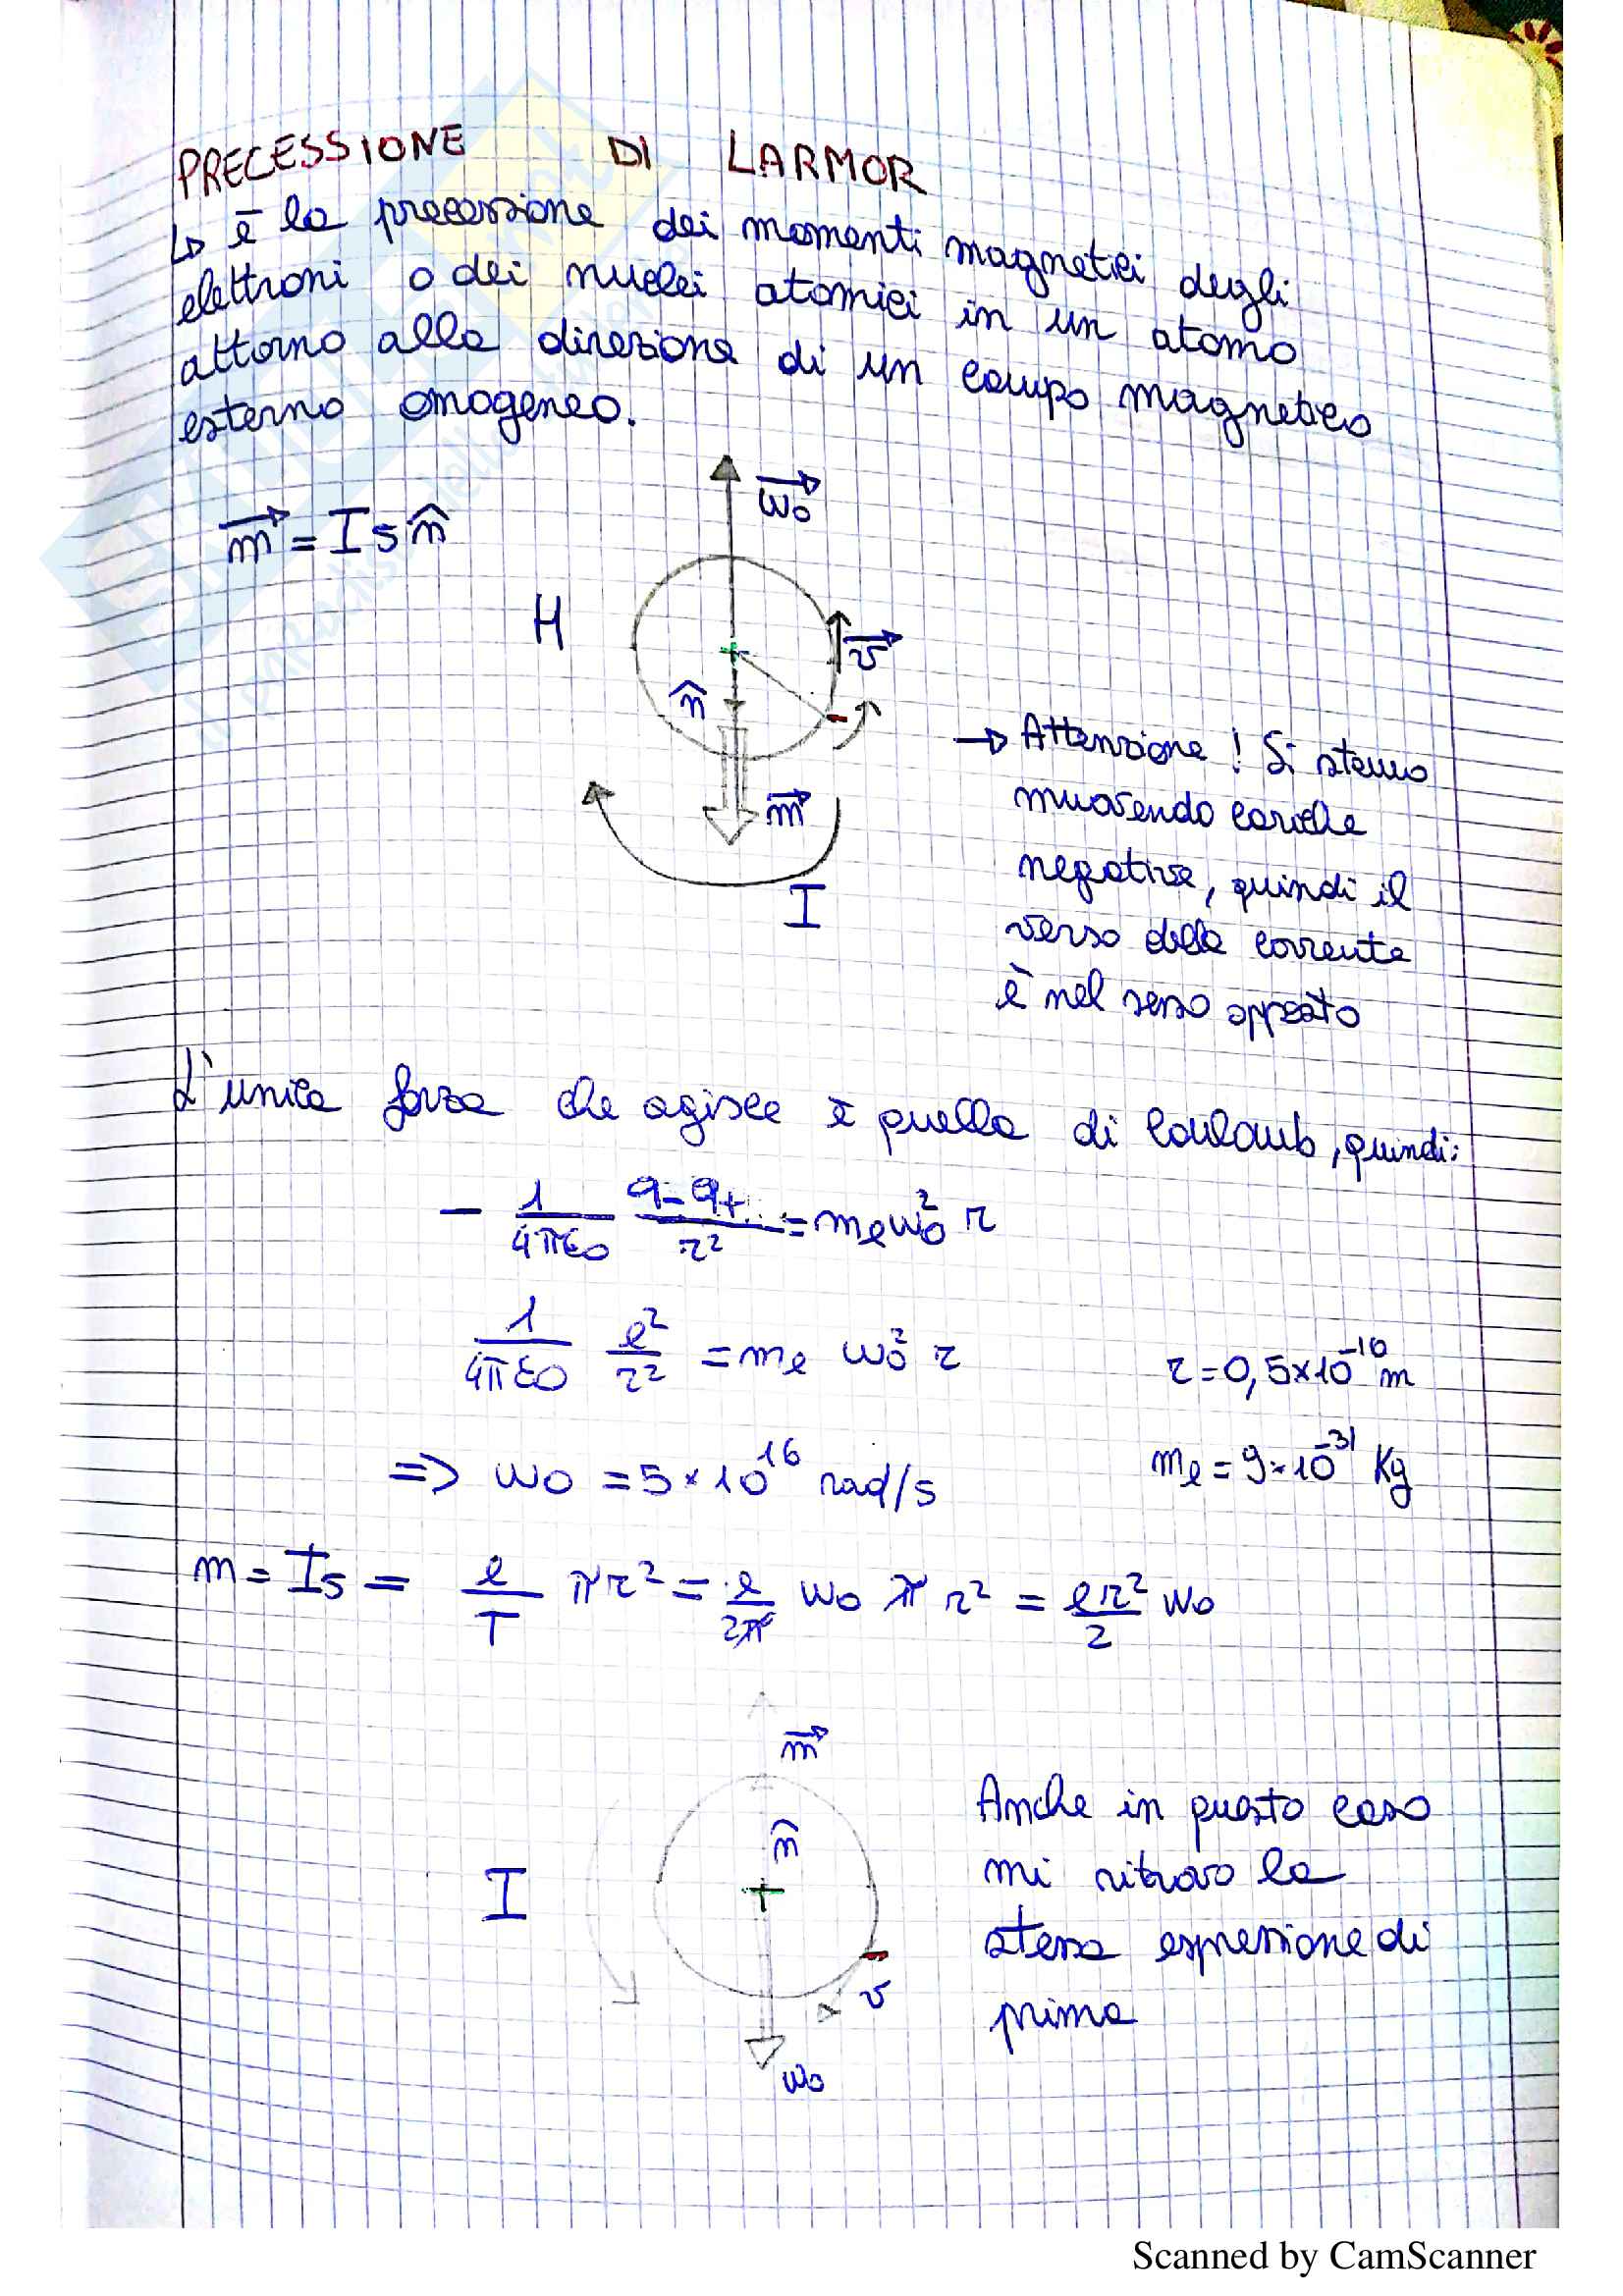 PRECESSIONE DI LARMOR
↳ è la precessione dei momenti magnetici degli
elettroni o dei nuclei atomici in un atomo
attorno alla direzione di un campo magnetico
esterno omogeneo.
m⃗ = I s n̂
ω₀⃗
H
v⃗
n̂
m⃗
I
→ Attenzione! Si stanno
muovendo cariche
negative, quindi il
verso della corrente
è nel senso opposto
L'unica forza che agisce è quella di Coulomb, quindi:
- 1/(4πε₀) q₋q₊/r² = mₑω₀² r
1/(4πε₀) e²/r² = mₑ ω₀² r
r = 0,5×10⁻¹⁰ m
⇒ ω₀ = 5×10¹⁶ rad/s
mₑ = 9×10⁻³¹ Kg
m = Is = e/T πr² = e/2π ω₀ π r² = er²/2 ω₀
m⃗
n̂
I
v
ω₀
Anche in questo caso
mi ritrovo la
stessa espressione di
prima
Scanned by CamScanner